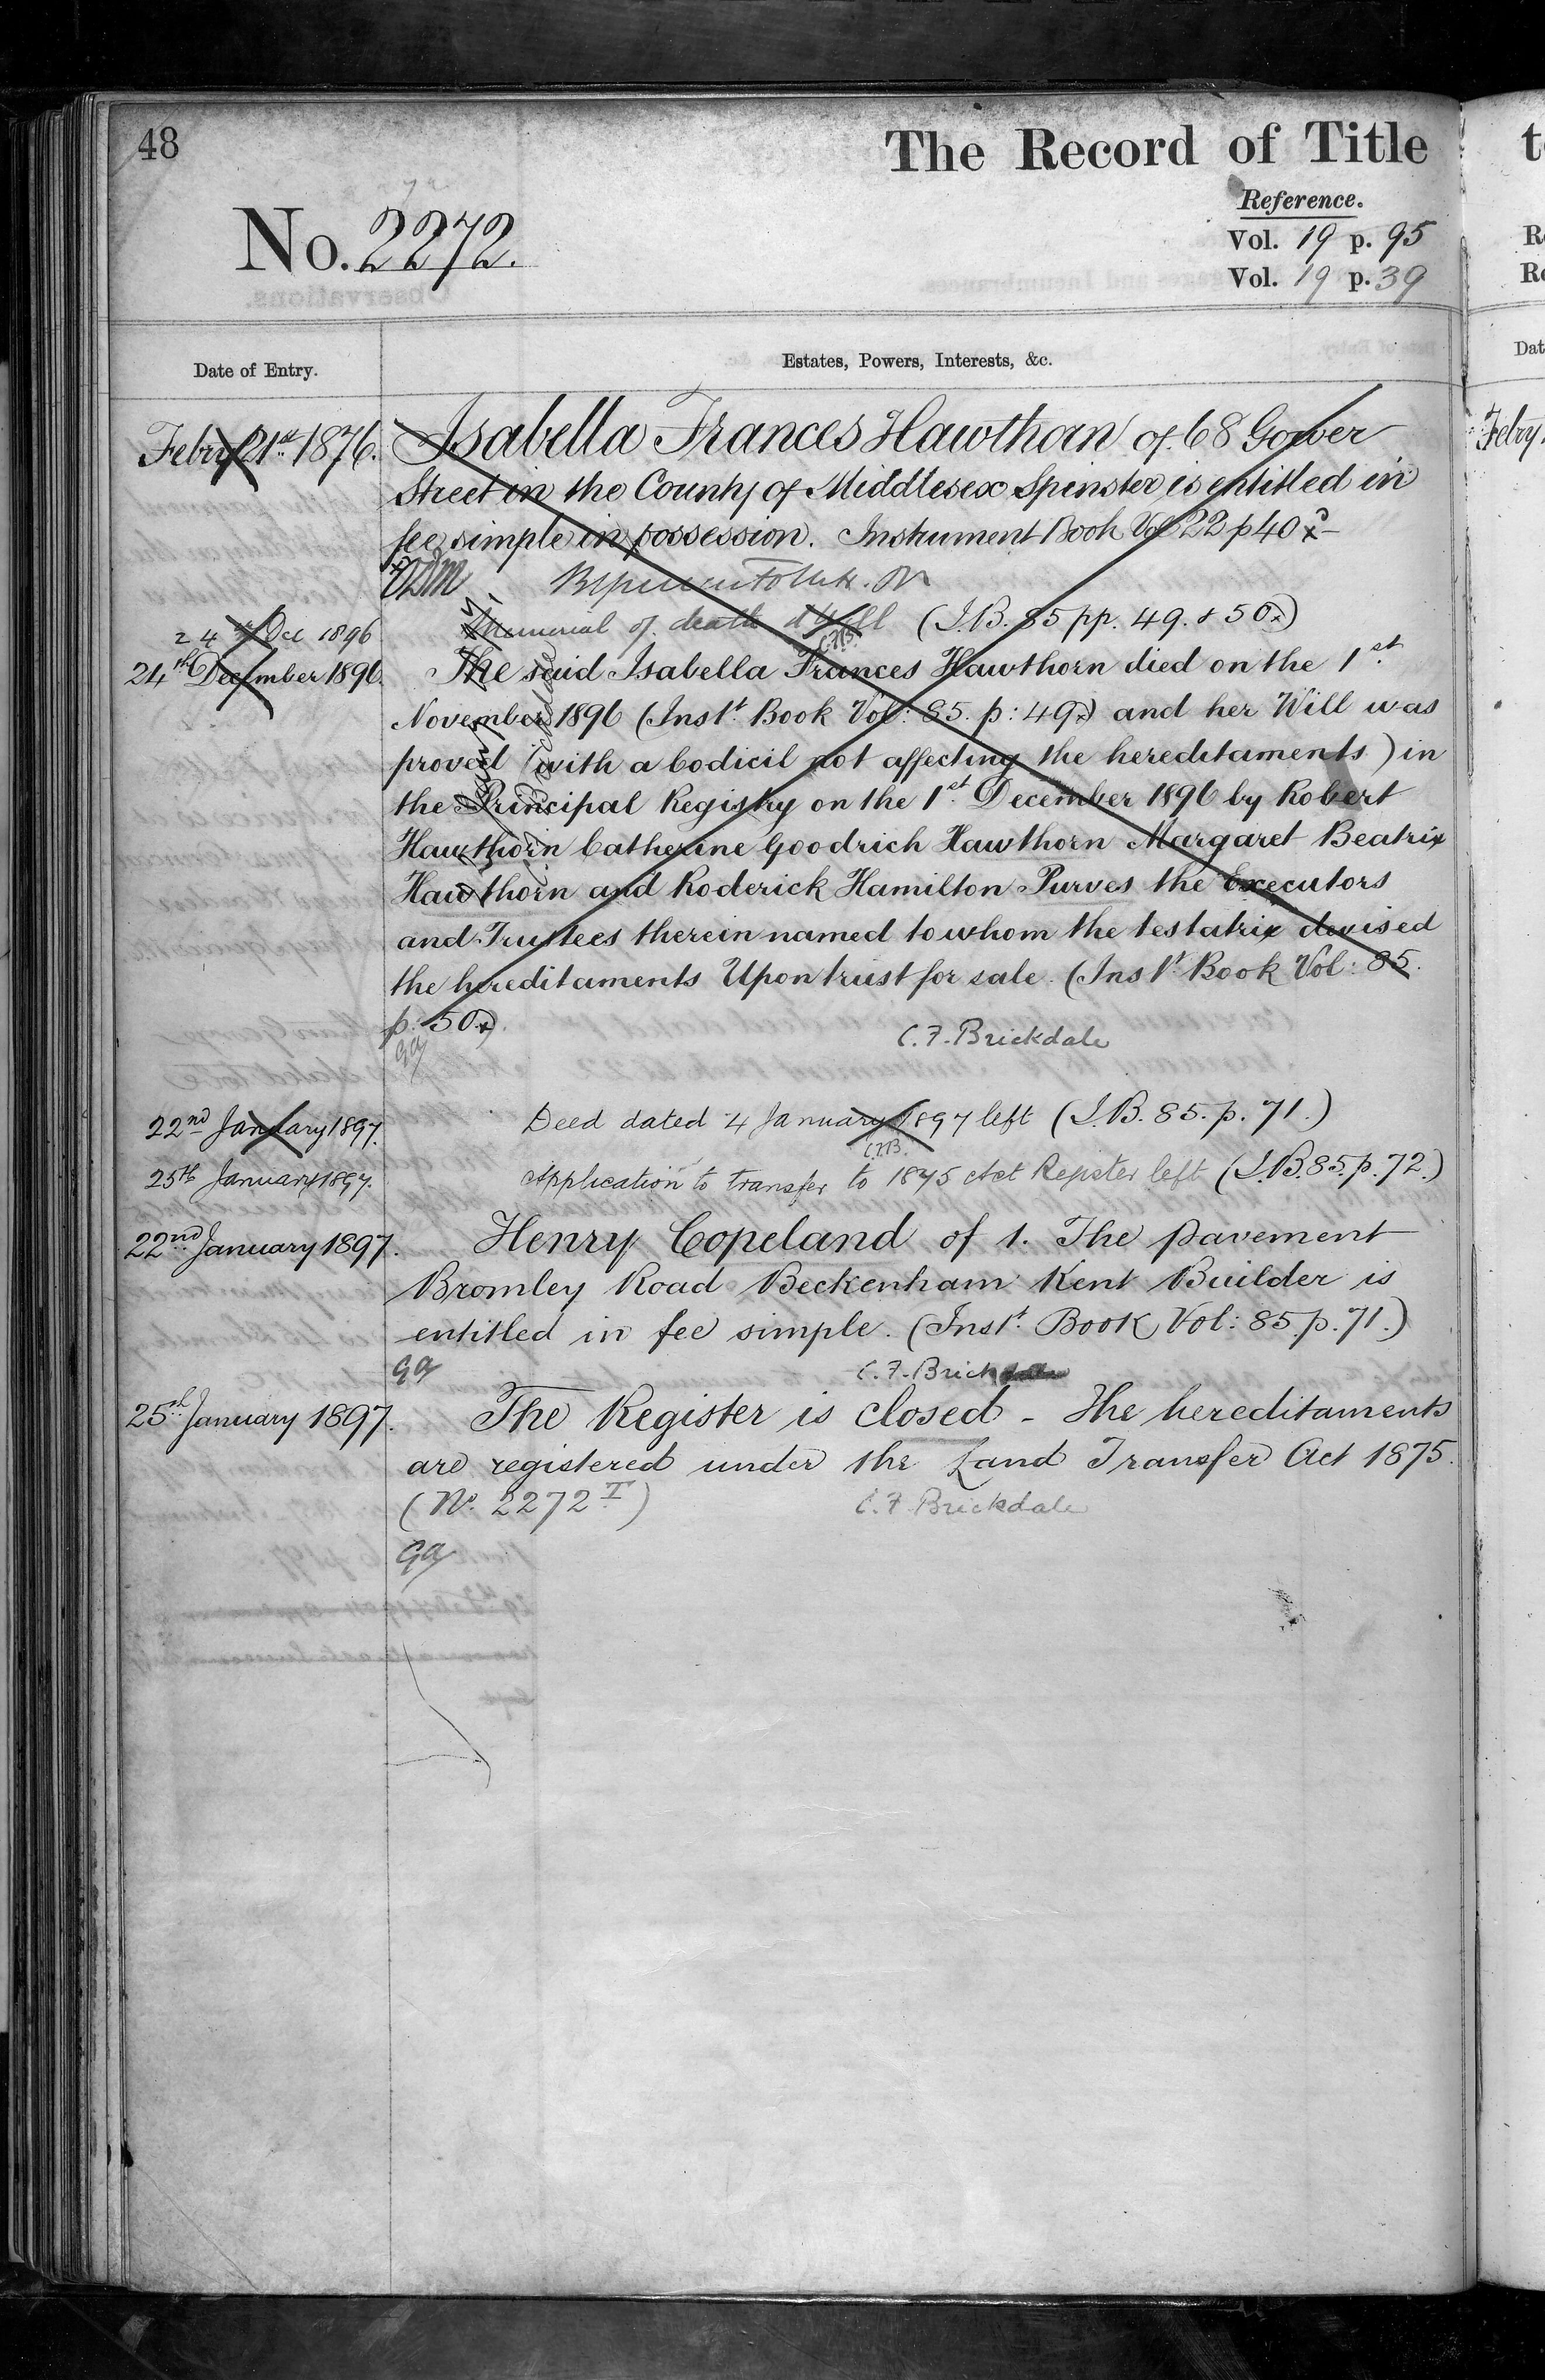 48
The Record of Title
Reference.
No. 2272.
Vol. 19 p. 95
Vol. 19 p. 39
Date of Entry.
Estates, Powers, Interests, &c.
Febry 21st 1876. Isabella Frances Hawthorn of 68 Gower
Street in the County of Middlesex Spinster is entitled in
fee simple in possession. Instrument Book Vol 22 p 40
24 Dec 1896 Memorial of death & Will (I.B. 85 pp. 49. & 50.)
C.F.B.
24th December 1896. The said Isabella Frances Hawthorn died on the 1st
November 1896 (Inst. Book Vol: 85. p: 49.) and her Will was
proved (with a Codicil not affecting the hereditaments) in
the Principal Registry on the 1st December 1896 by Robert
Hawthorn Catherine Goodrich Hawthorn Margaret Beatrix
Hawthorn and Roderick Hamilton Purves the Executors
and Trustees therein named to whom the testatrix devised
the hereditaments Upon trust for sale. (Inst. Book Vol: 85.
p: 50.)
C. F. Brickdale
22nd January 1897. Deed dated 4 January 1897 left (I.B. 85. p. 71.)
C.F.B.
25th January 1897. Application to transfer to 1875 Act Register left (I.B. 85 p. 72.)
22nd January 1897. Henry Copeland of 1. The Pavement
Bromley Road Beckenham Kent Builder is
entitled in fee simple. (Inst. Book Vol: 85. p. 71.)
C. F. Brickdale
25th January 1897. The Register is closed - The hereditaments
are registered under the Land Transfer Act 1875.
(No. 2272 I)
C. F. Brickdale
t
R
R
Dat
Febry